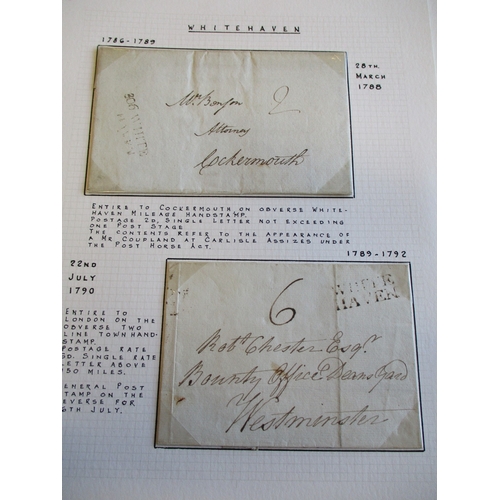 WHITEHAVEN
1786-1789
28TH.
MARCH
1788
306 WHITE
HAVEN
Mr. Benson 2
Attorney
Cockermouth
ENTIRE TO COCKERMOUTH ON OBVERSE WHITE-
HAVEN MILEAGE HANDSTAMP.
POSTAGE 2D. SINGLE LETTER NOT EXCEEDING
ONE POST STAGE
THE CONTENTS REFER TO THE APPEARANCE OF
A MR. COUPLAND AT CARLISLE ASSIZES UNDER
THE POST HORSE ACT.
1789-1792
22ND
JULY
1790
ENTIRE TO
LONDON ON THE
OBVERSE TWO
LINE TOWN HAND-
STAMP.
POSTAGE RATE
6D. SINGLE RATE
LETTER ABOVE
150 MILES.
GENERAL POST
STAMP ON THE
REVERSE FOR
6TH JULY.
6
WHITE
HAVEN
Robt. Chester Esqr.
Bounty Office Deans Yard
Westminster